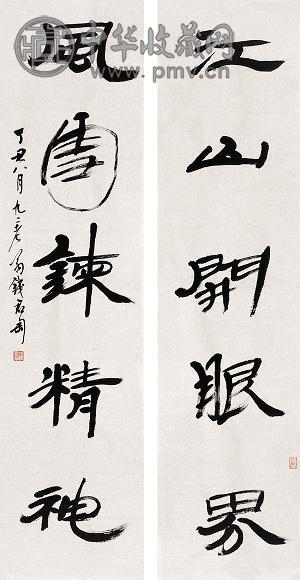 中华收藏网
www.pmv.cn
江山開眼界
風雪鍊精神
丁丑八月九二翁錢君匋